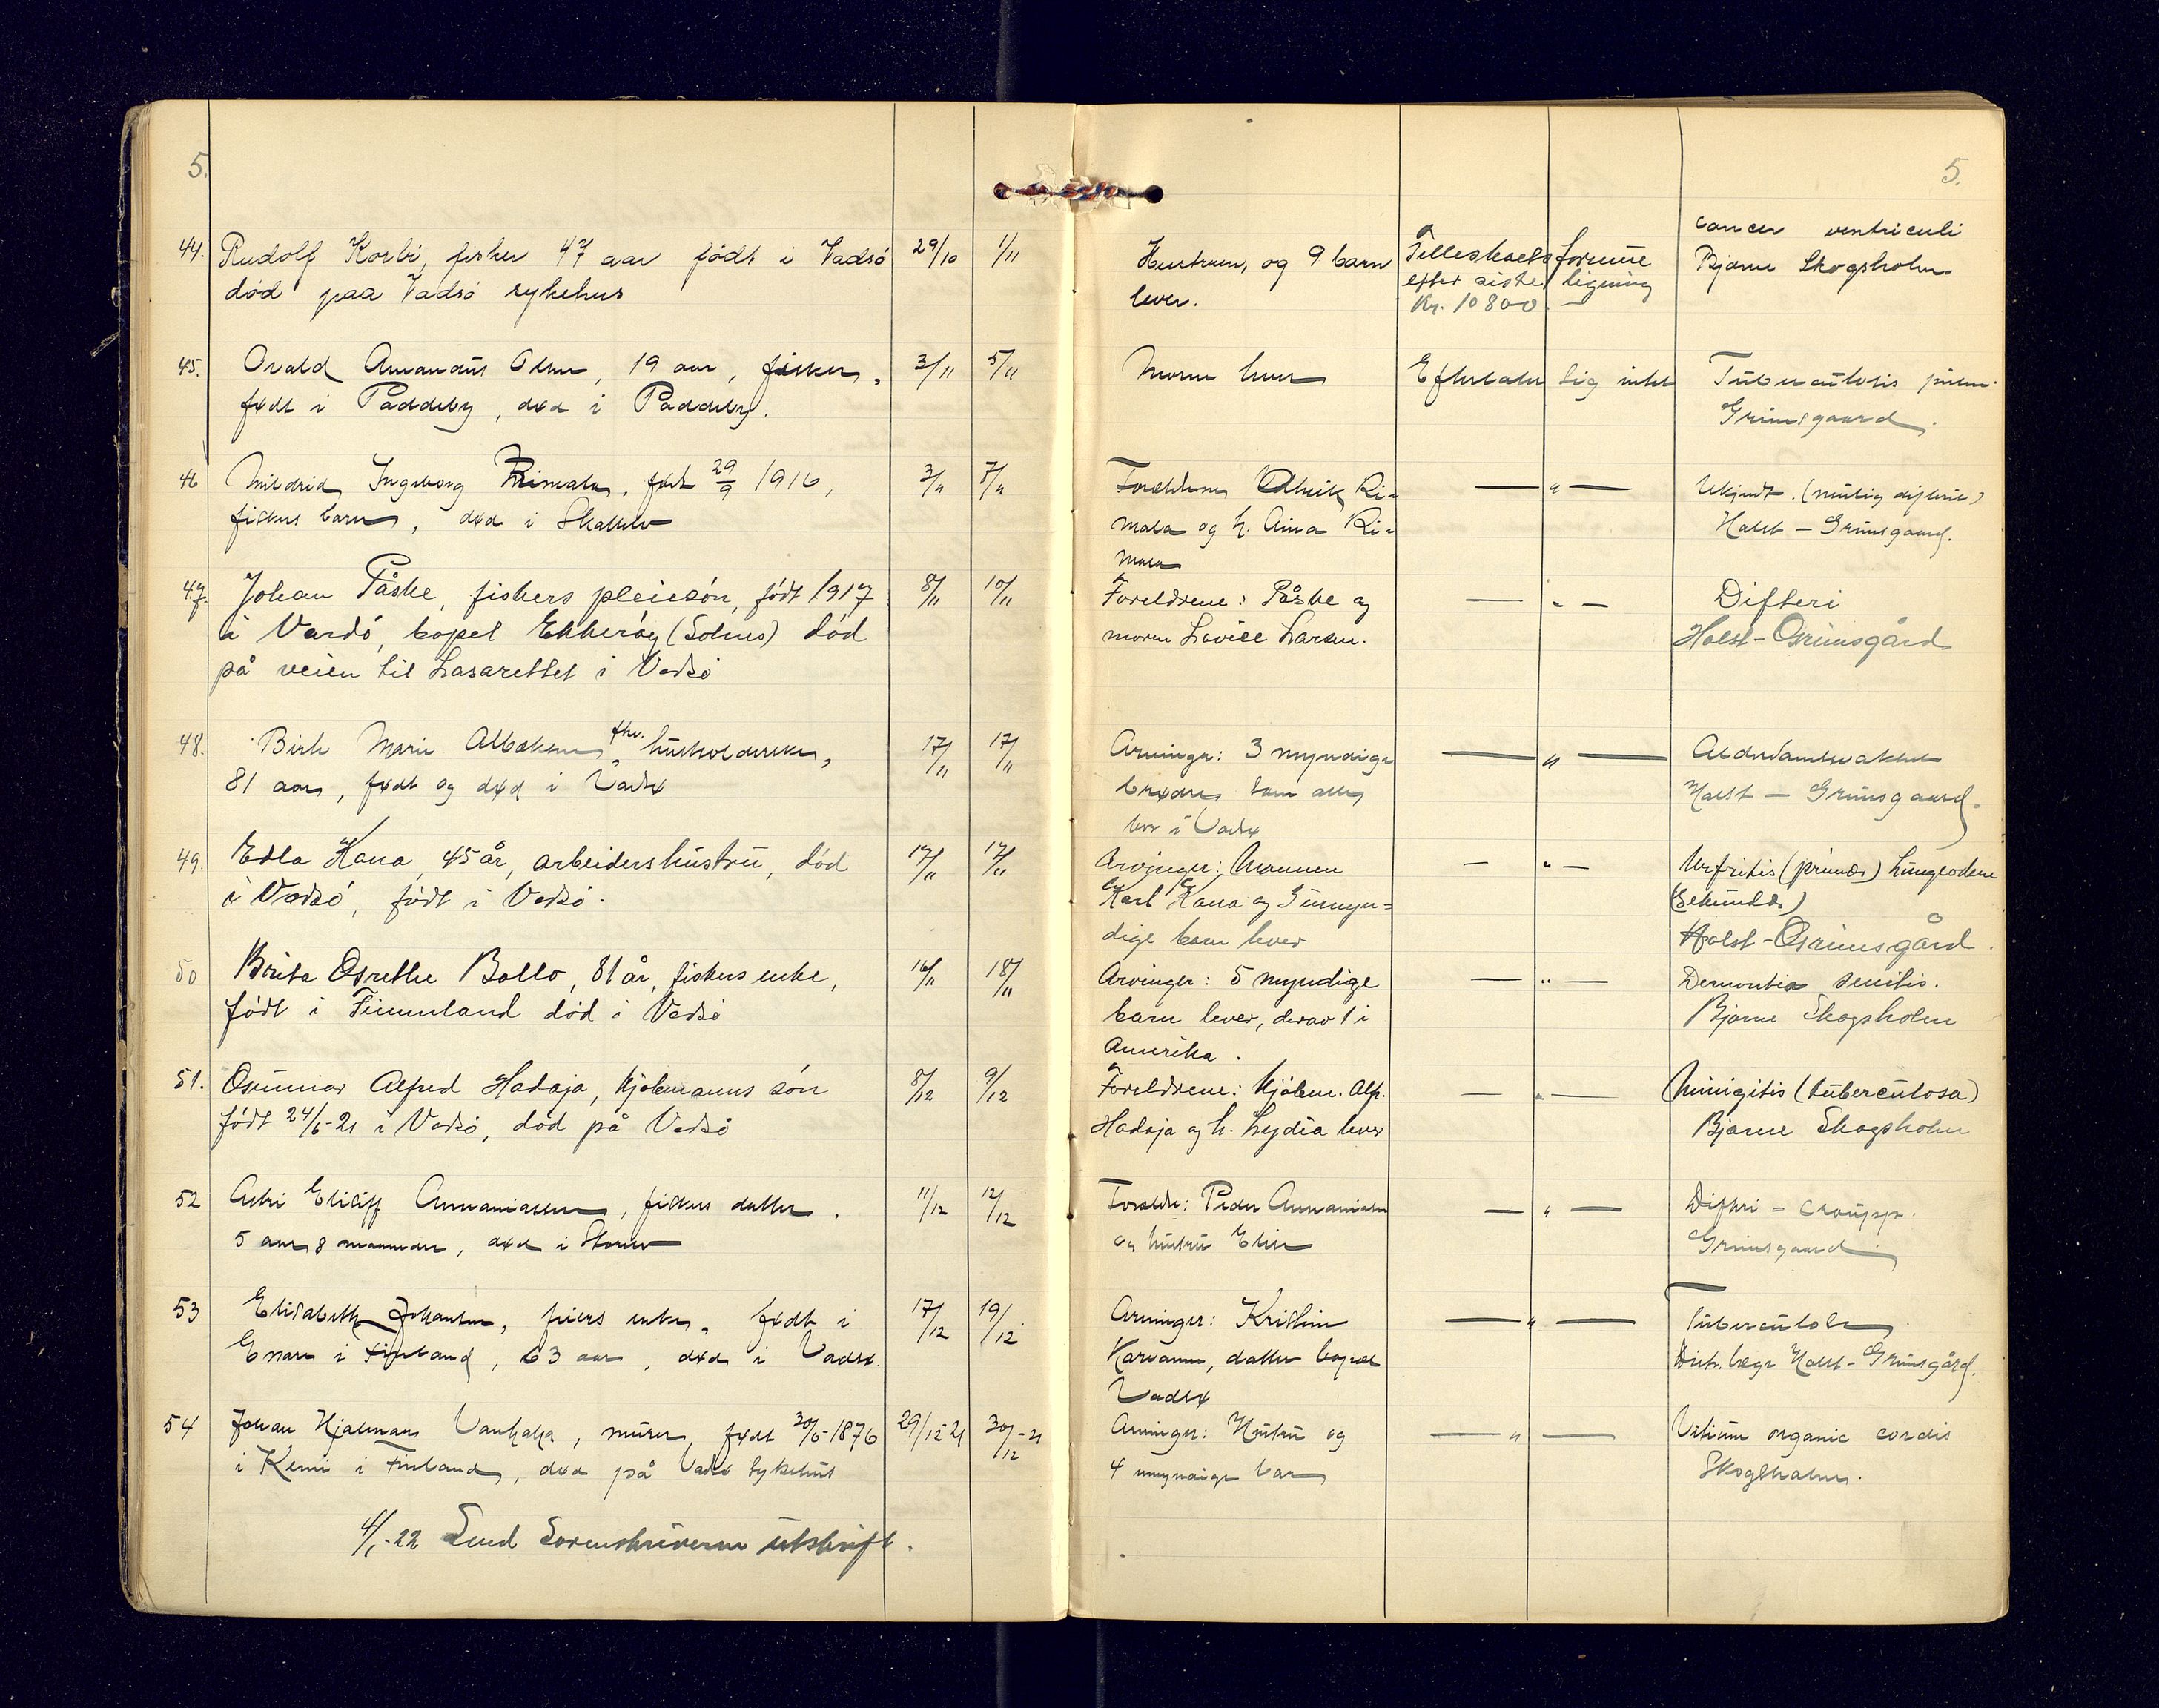 5.
5.
44. Rudolf Korbi, fisker 47 aar født i Vadsö 29/10 1/11
død paa Vadsö sykehus
Hustruen, og 9 barn
lever.
Fælleskaets formue
efter siste ligning
Kr. 10800.—
Cancer ventriculi
Bjarne Skogsholm
45. Osvald Amandus Olsen, 19 aar, fisker, 3/11 5/11
født i Paddeby, død i Paddeby.
Moren lever
Efterlater sig intet
Tuberculosis pulm.
Grimsgaard.
46 Mildrid Ingeborg Rimala, født 29/9 1916, 3/11 7/11
fiskers barn, død i
Forældrene Ri-
mala og h. Aina Ri-
mala
— " —
Ukjendt. (mulig difteri)
Holst - Grimsgaard.
47. Johan Påske, fiskers pleiesön, født 1917 8/11 10/11
i Vardö, bopel Ekkeröy (Solnes) död
på veien til Lasarettet i Vadsö
Foreldrene: Påske og
moren Lovise Larsen.
— " —
Difteri
Holst-Grimsgård
48. Birte Marie Albaksen, fhv. husholderske, 17/11 17/11
81 aar, født og død i Vadsø
Arvinger: 3 myndige
brødre, som alle
bor i Vadsø
— " —
Alderdomssvakhet
Holst - Grimsgaard.
49. Edla Kana, 45 år, arbeidershustru, död 17/11 17/11
i Vadsö, födt i Vadsö.
Arvinger: Mannen
Karl Kana og 5 umyn=
dige barn lever
— " —
Nefritis (primær) Lungeödem
(sekundær)
Holst-Grimsgård.
50 Brita Grethe Ballo, 81 år, fiskers enke, 16/11 18/11
födt i Finnland död i Vadsö
Arvinger: 5 myndige
barn lever, derav 1 i
Amerika.
— " —
Dementia senilis.
Bjarne Skogsholm
51. Gunnar Alfred Hadaja, kjöbmanns sön 8/12 9/12
födt 24/6-21 i Vadsö, död på Vadsö
Foreldrene: Kjöbm. Alf.
Hadaja og h. Lydia lever
— " —
Minigitis (tuberculosa)
Bjarne Skogsholm
52 Astri Elisiff Annaniassen, fiskers datter. 11/12 12/12
5 aar 8 maaneder, død i
Foreldre: Peder Annaniassen
og hustru Elen
— " —
Difteri - croupp.
Grimsgaard.
53 Elisabeth Johansen, enke, født i 17/12 19/12
Enare i Finland, 63 aar, død i Vadsø.
Arvinger: Kristine
Karvonen, datter bopæl
Vadsø
— " —
Tuberculose
Distr. læge Holst-Grimsgård.
54 Johan Hjalmar Vanhala, murer, født 30/5-1876 29/12 21 30/12-21
i Kemi i Finland, død på Vadsø Sykehus
Arvinger: Hustru og
4 umyndige barn
— " —
Vitium organic cordis
Skogsholm.
4/1-22 Send Sorenskriveren utskrift.